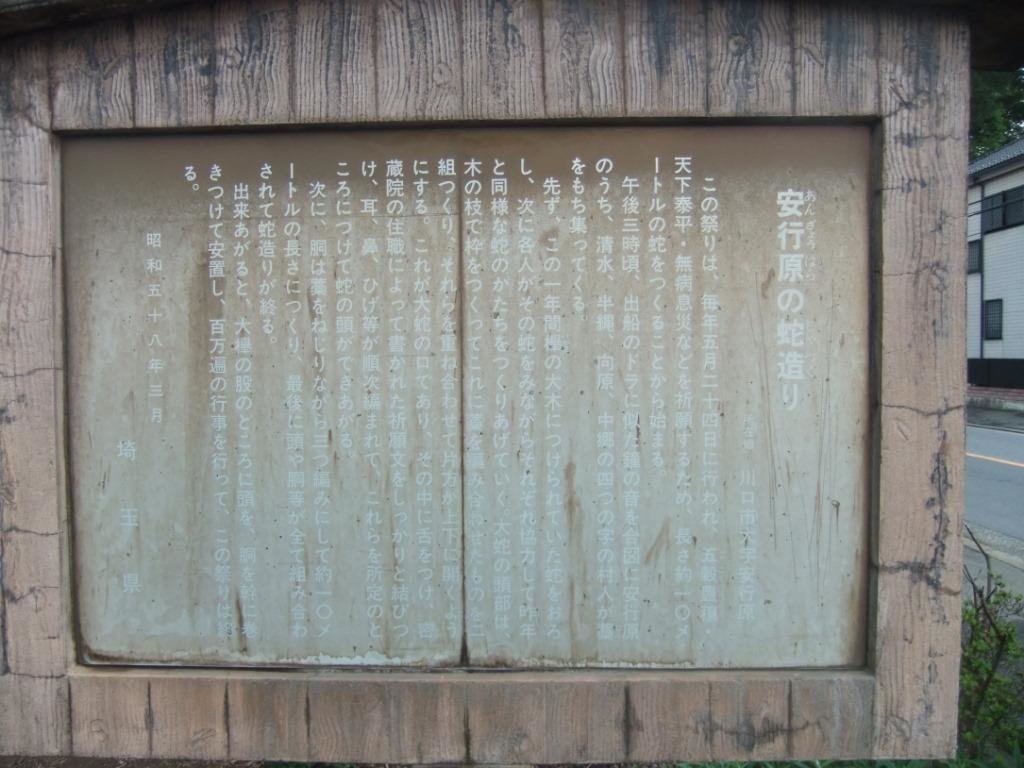 安行原の蛇造り
あんぎょうはら
所在地 川口市大字安行原
この祭りは、毎年五月二十四日に行われ、五穀豊穣・
天下泰平・無病息災などを祈願するため、長さ約一〇メ
ートルの蛇をつくることから始まる。
午後三時頃、出船のドラに似た鐘の音を合図に安行原
のうち、清水、半縄、向原、中郷の四つの字の村人が藁
をもち集ってくる。
先ず、この一年間欅の大木につけられていた蛇をおろ
し、次に各人がその蛇をみながらそれぞれ協力して昨年
と同様な蛇のかたちをつくりあげていく。大蛇の頭部は、
木の枝で枠をつくってこれに藁を編み合わせたものを二
組つくり、それらを重ね合わせて片方が上下に開くよう
にする。これが大蛇の口であり、その中に舌をつけ、密
蔵院の住職によって書かれた祈願文をしっかりと結びつ
け、耳、鼻、ひげ等が順次編まれて、これらを所定のと
ころにつけて蛇の頭ができあがる。
次に、胴は藁をねじりながら三つ編みにして約一〇メ
ートルの長さにつくり、最後に頭や胴等が全て組み合わ
されて蛇造りが終る。
出来あがると、大欅の股のところに頭を、胴を幹に巻
きつけて安置し、百万遍の行事を行って、この祭りは終
る。
昭和五十八年三月
埼玉県